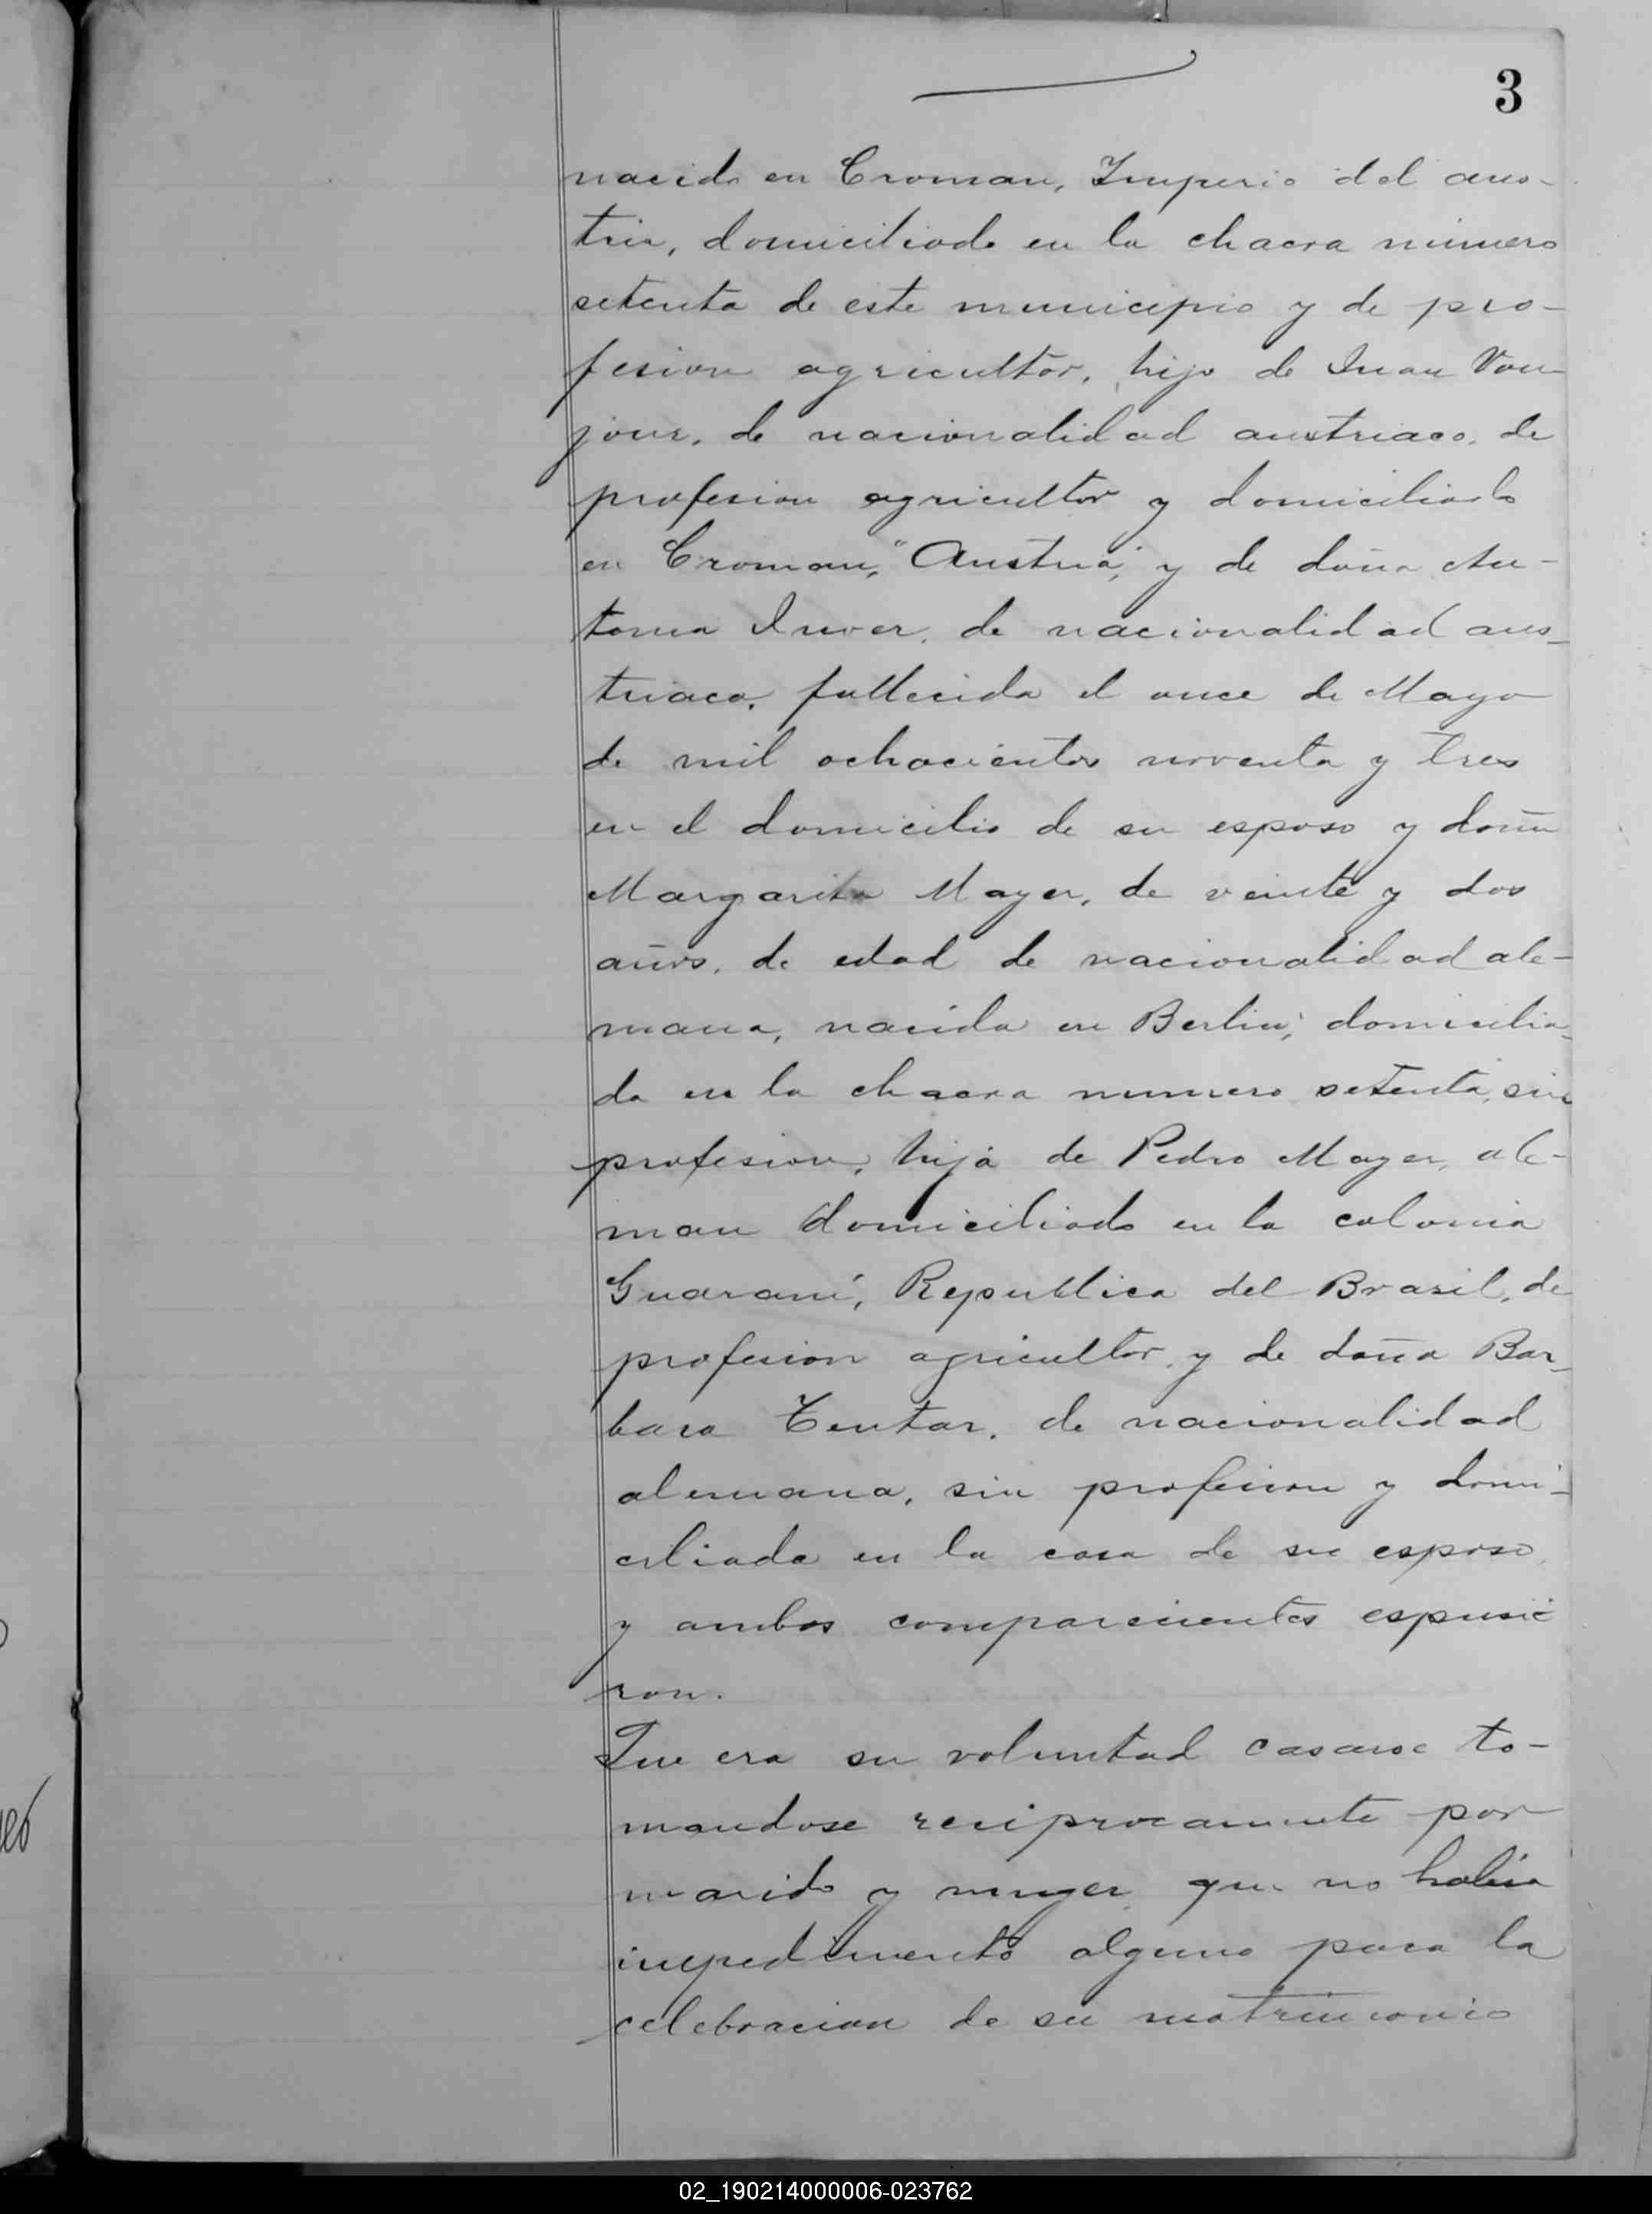 3
nacido en Croman, Imperio del aus-
tria, domiciliado en la chacra número
setenta de este municipio y de pro-
fesion agricultor, hijo de Juan Von
jour, de nacionalidad austriaco, de
profesion agricultor y domiciliado
en Croman, "Austria", y de doña An-
tonia Inver, de nacionalidad aus-
triaca, fallecida el once de Mayo
de mil ochocientos noventa y tres
en el domicilio de su esposo y doña
Margarita Mayer, de veinte y dos
años, de edad de nacionalidad ale-
mana, nacida en Berlin, domicilia-
da en la chacra numero setenta, sin
profesion, hija de Pedro Mayer, ale-
man domiciliado en la colonia
Guaraní, Republica del Brasil, de
profesion agricultor, y de doña Bar-
bara Tentar, de nacionalidad
alemana, sin profesion y domi-
ciliada en la casa de su esposo,
y ambos comparecientes espusie
ron.
Que era su voluntad casarse to-
mandose reciprocamente por
marido y muger, que no habia
impedimento alguno para la
celebracion de su matrimonio
02_190214000006-023762